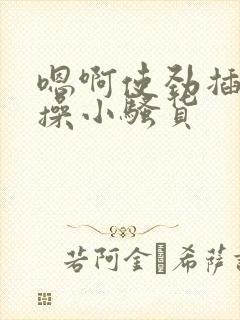 嗯啊使劲插
操小骚货
若阿金·希萨